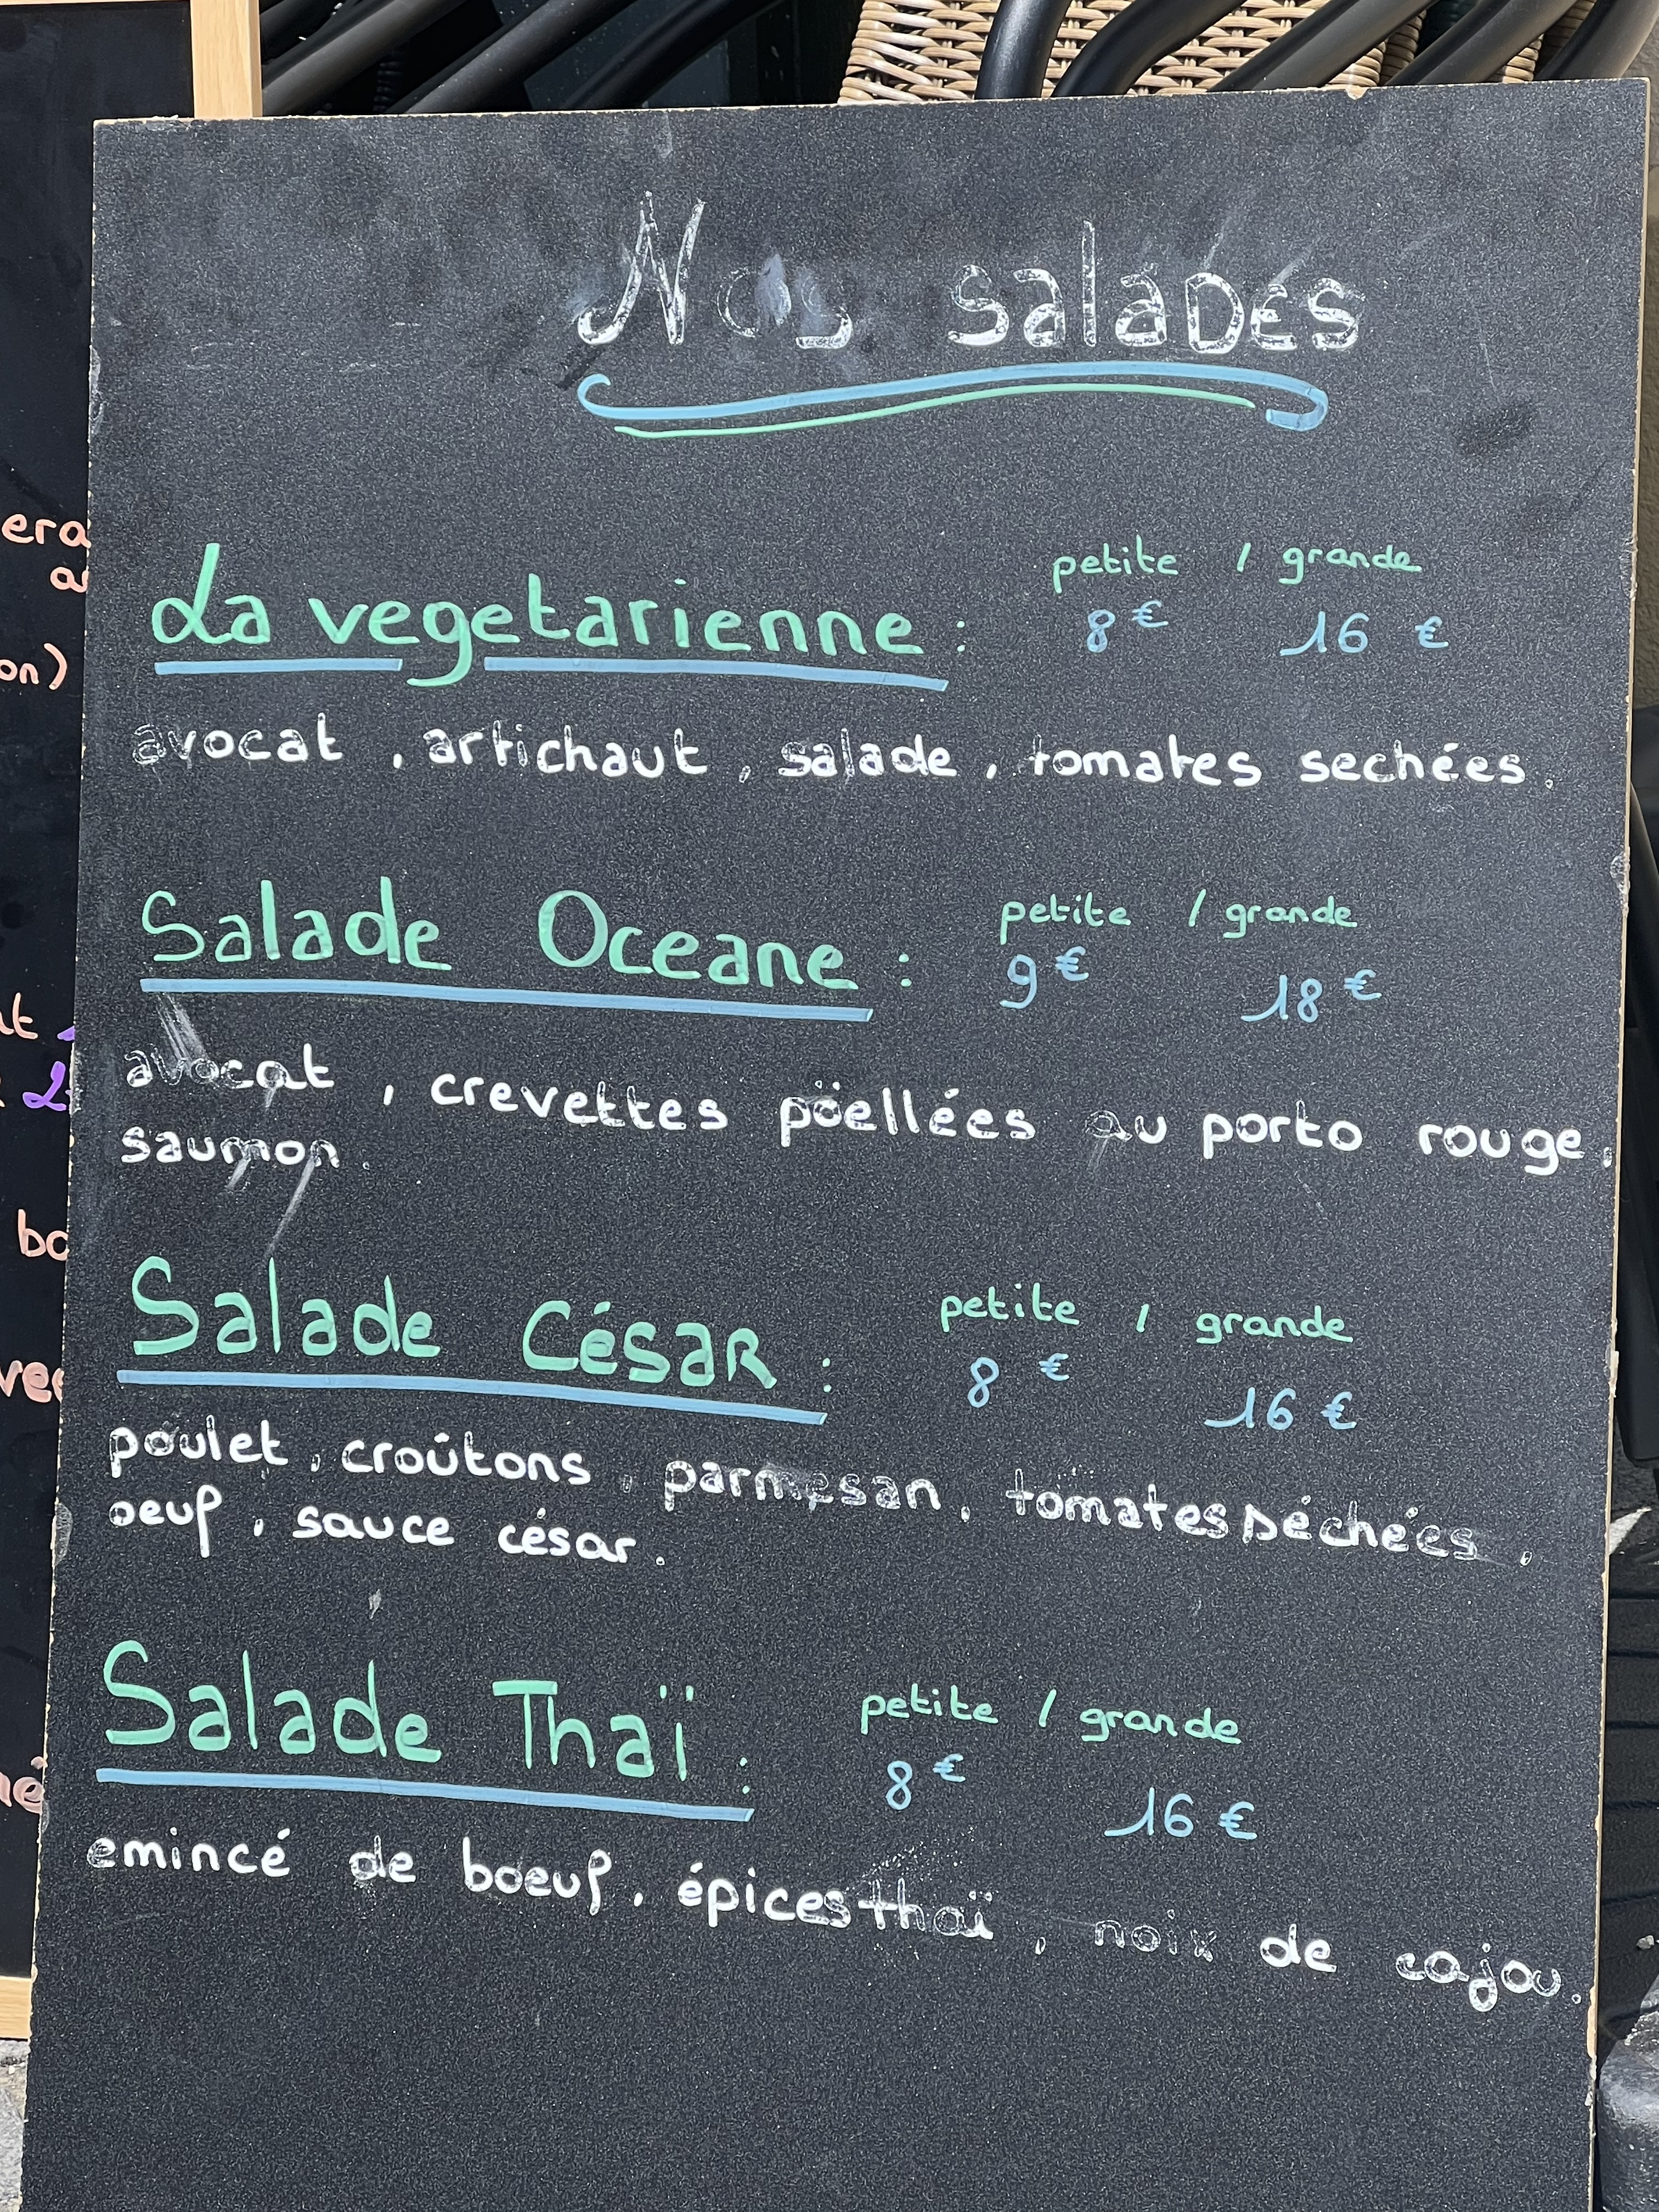 Nos salades
petite / grande
La vegetarienne : 8€ 16 €
avocat , artichaut , salade , tomates sechées .
petite / grande
Salade Oceane : 9€ 18€
avocat , crevettes pöellées au porto rouge.
saumon .
petite / grande
Salade César : 8 € 16 €
poulet , croûtons , parmesan , tomates séchées ,
oeuf , sauce césar .
petite / grande
Salade Thaï : 8 € 16 €
emincé de boeuf , épices thaï , noix de cajou .